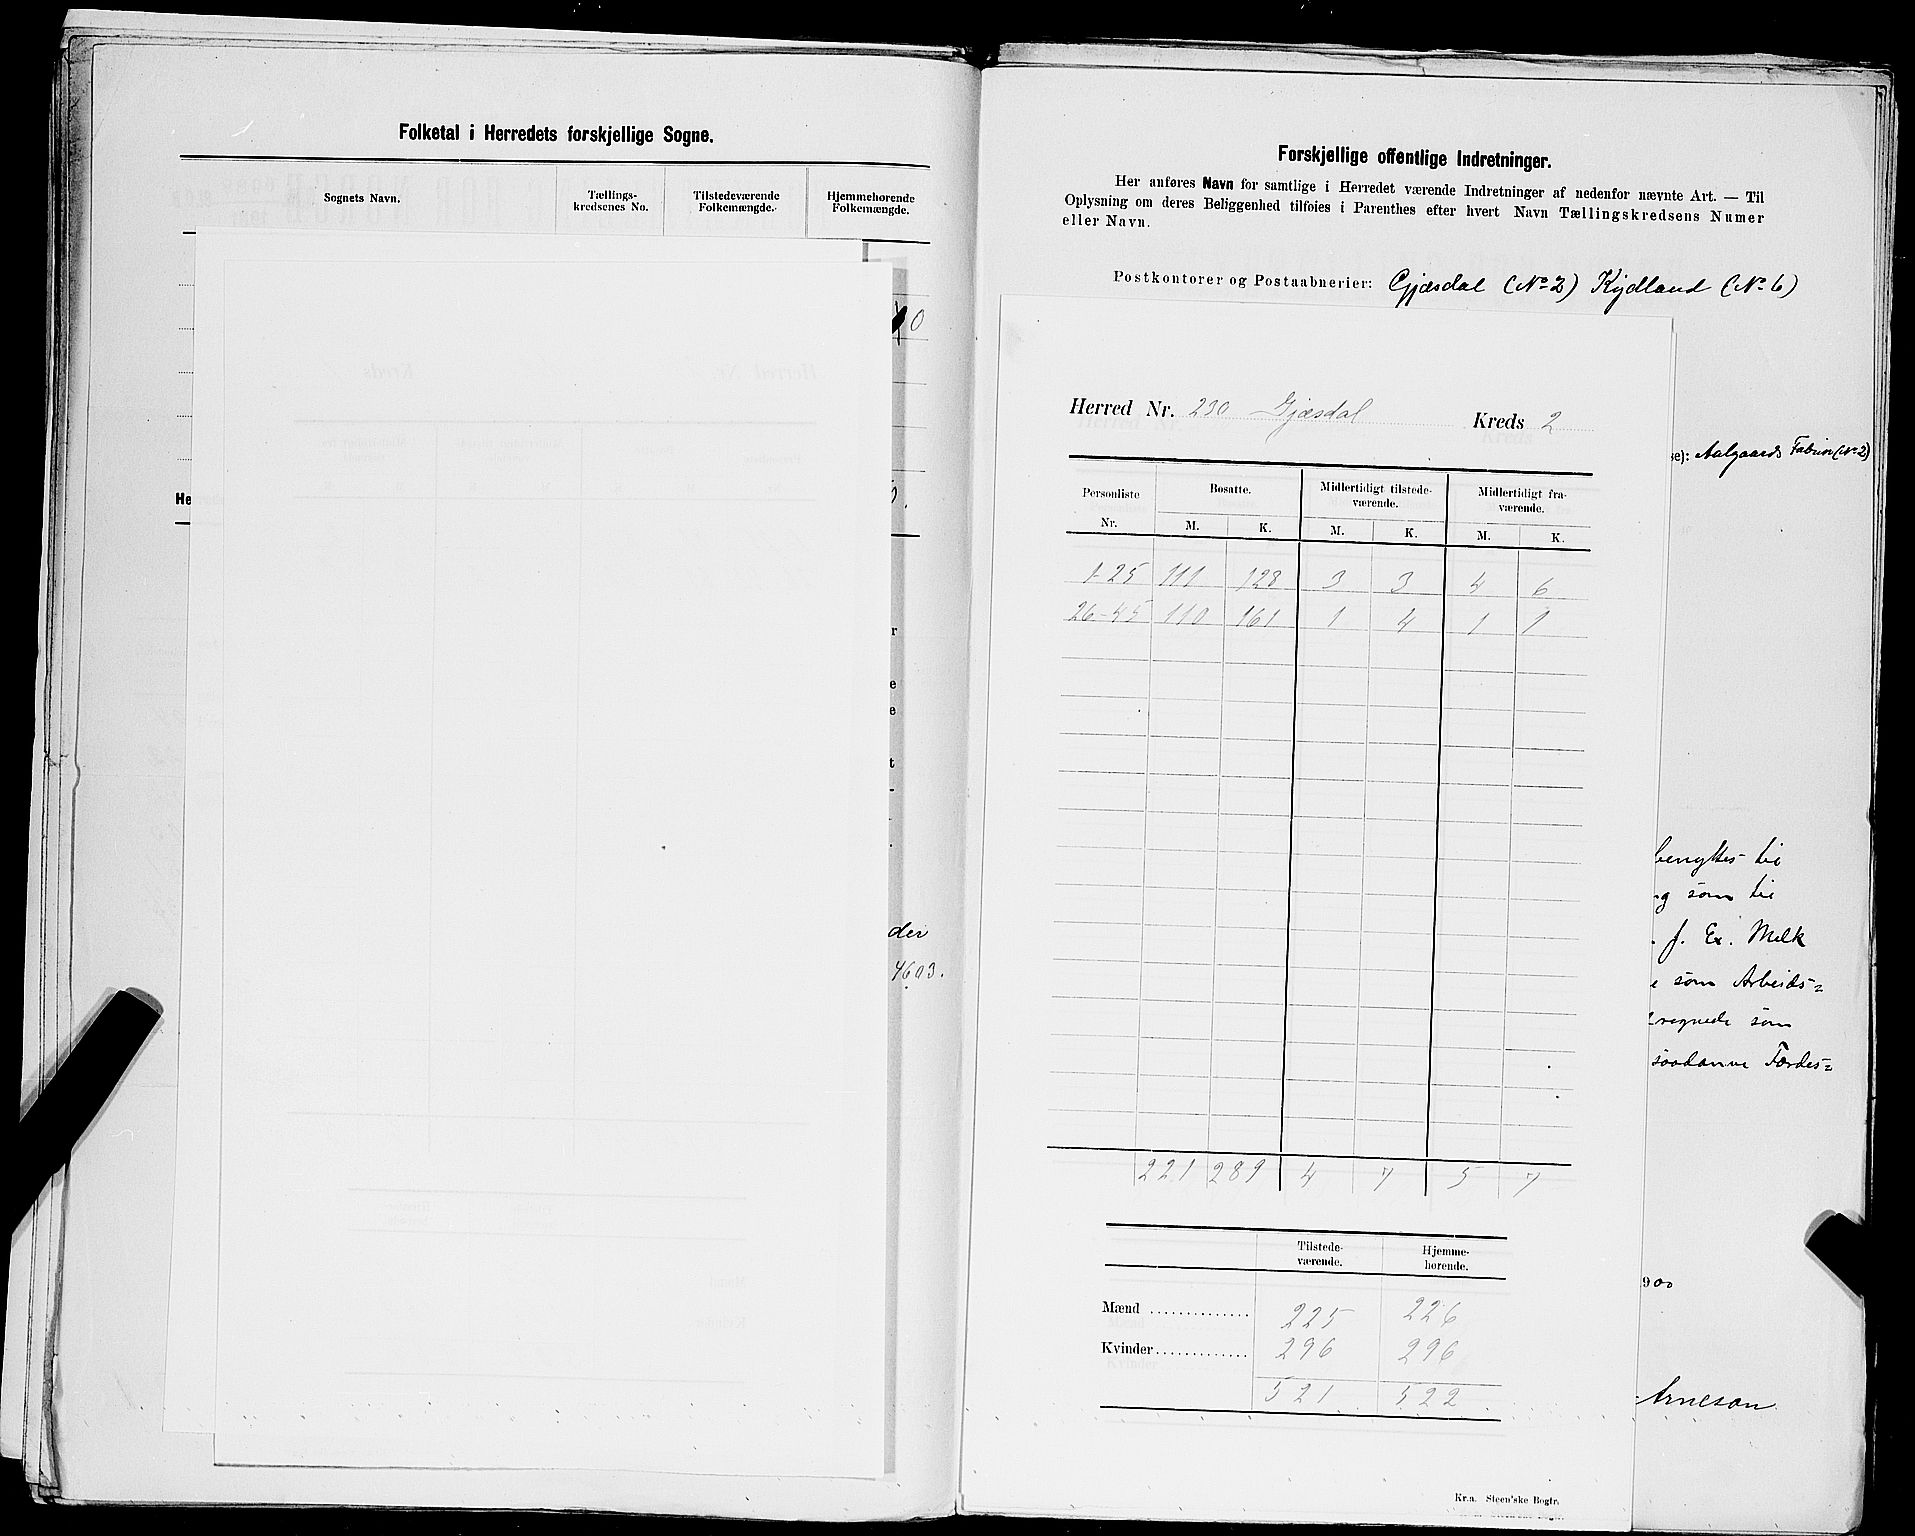 Folketal i Herredets forskjellige Sogne.
Sognets Navn.
Tællings-
kredsenes No.
Tilstedeværende
Folkemængde.
Hjemmehørende
Folkemængde.
0
He
0.
r
e
e
t
der
4603.
Forskjellige offentlige Indretninger.
Her anføres Navn for samtlige i Herredet værende Indretninger af nedenfor nævnte Art. — Til
Oplysning om deres Beliggenhed tilføies i Parenthes efter hvert Navn Tællingskredsens Numer
eller Navn.
Postkontorer og Postaabnerier: Gjæsdal (No 2) Kydland (No 6)
Herred Nr. 230 Gjæsdal Kreds 2
se): Aalgaards Fabrik (No 2)
Personliste
Nr.
Bosatte.
M. K.
Midlertidigt tilstede-
værende.
M. K.
Midlertidigt fra-
værende.
M. K.
1-25 111 128 3 3 4 6
26-45 110 161 1 4 1 1
221 289 4 7 5 7
Tilstede-
værende.
Hjemme-
hørende.
Mænd .............. 225 226
Kvinder............. 296 296
521 522
benyttes til
som til
f. Ex. Melk
som Arbeids=
regnede som
saadanne Færdes=
900
Arneson
Kr.a. Steen'ske Bogtr.